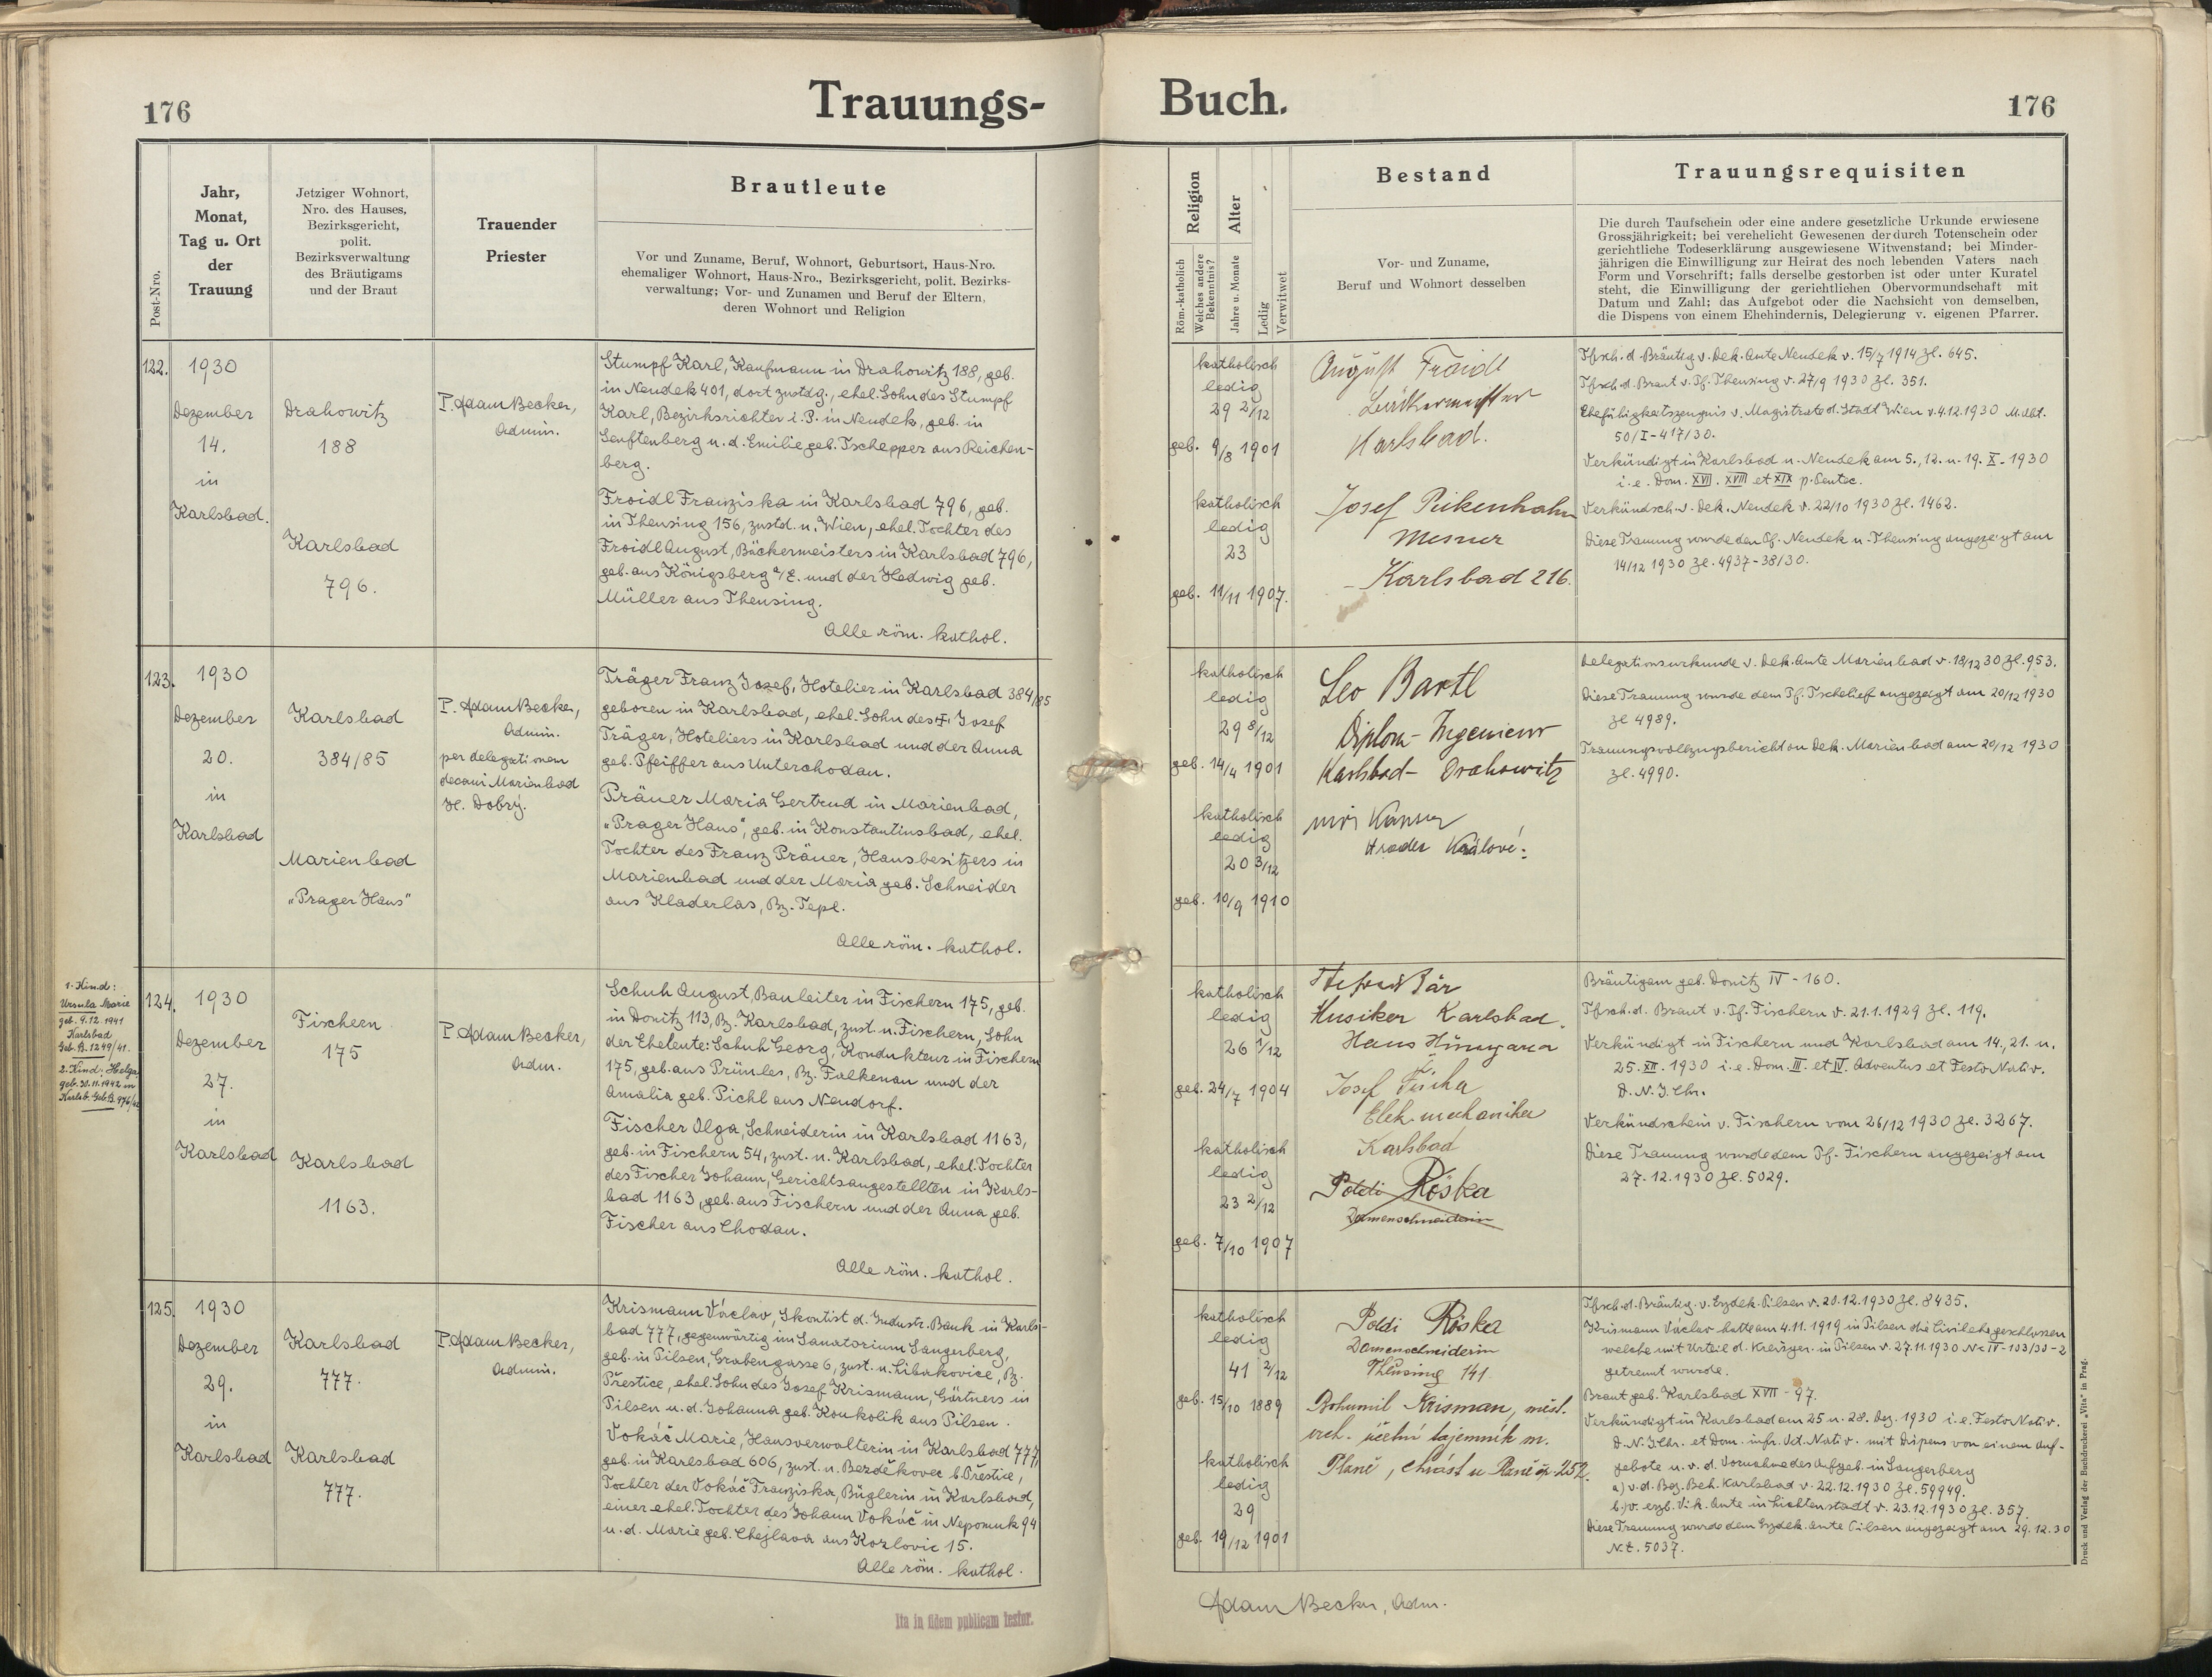 176
Trauungs-
Buch.
176
Post-Nro.
Jahr,
Monat,
Tag u. Ort
der
Trauung
Jetziger Wohnort,
Nro. des Hauses,
Bezirksgericht,
polit.
Bezirksverwaltung
des Bräutigams
und der Braut
Trauender
Priester
Brautleute
Vor und Zuname, Beruf, Wohnort, Geburtsort, Haus-Nro.
ehemaliger Wohnort, Haus-Nro., Bezirksgericht, polit. Bezirks-
verwaltung; Vor- und Zunamen und Beruf der Eltern,
deren Wohnort und Religion
Religion
Röm.-katholisch
Welches andere
Bekenntnis?
Alter
Jahre u. Monate
Ledig
Verwitwet
Bestand
Vor- und Zuname,
Beruf und Wohnort desselben
Trauungsrequisiten
Die durch Taufschein oder eine andere gesetzliche Urkunde erwiesene
Grossjährigkeit; bei verehelicht Gewesenen der durch Totenschein oder
gerichtliche Todeserklärung ausgewiesene Witwenstand; bei Minder-
jährigen die Einwilligung zur Heirat des noch lebenden Vaters nach
Form und Vorschrift; falls derselbe gestorben ist oder unter Kuratel
steht, die Einwilligung der gerichtlichen Obervormundschaft mit
Datum und Zahl; das Aufgebot oder die Nachsicht von demselben,
die Dispens von einem Ehehindernis, Delegierung v. eigenen Pfarrer.
122.
1930
Dezember
14.
in
Karlsbad.
Drahowitz
188
Karlsbad
796.
P. Adam Becker,
Admin.
Stumpf Karl, Kaufmann in Drahowitz 188, geb.
in Neudek 401, dort zustdg., ehel. Sohn des Stumpf
Karl, Bezirksrichter i. P. in Neudek, geb. in
Senftenberg u. d. Emilie geb. Tschepper aus Reichen-
berg.
Froidl Franziska in Karlsbad 796, geb.
in Theusing 156, zustd. n. Wien, ehel. Tochter des
Froidl August, Bäckermeisters in Karlsbad 796,
geb. aus Königsberg a/E. und der Hedwig geb.
Müller aus Theusing.
Alle röm. kathol.
katholisch
ledig
29 2/12
geb. 9/8 1901
katholisch
ledig
23
geb. 11/11 1907.
August Froidl
Bäckermeister
Karlsbad.
Josef Pikenhahn
Mesner
Karlsbad 216.
Tfsch. d. Bräutig. v. Dek. Amte Neudek v. 15/7 1914 Zl. 645.
Tfsch. d. Braut v. Pf. Theusing v. 27/9 1930 Zl. 351.
Ehefähigkeitszeugnis v. Magistrate d. Stadt Wien v. 4.12.1930 M. Abt.
50/I-417/30.
Verkündigt in Karlsbad u. Neudek am 5., 12. u. 19. X. 1930
i. e. Dom. XVII. XVIII et XIX p. Pentec.
Verkündsch. v. Dek. Neudek v. 22/10 1930 Zl. 1462.
Diese Trauung wurde den Pf. Neudek u. Theusing angezeigt am
14/12 1930 Zl. 4937-38/30.
123.
1930
Dezember
20.
in
Karlsbad
Karlsbad
384/85
Marienbad
"Prager Haus"
P. Adam Becker,
Admin.
per delegationem
decani Marienbad
H. Dobrý.
Träger Franz Josef, Hotelier in Karlsbad 384/85
geboren in Karlsbad, ehel. Sohn des † Josef
Träger, Hoteliers in Karlsbad und der Anna
geb. Pfeiffer aus Unterchodau.
Präuer Maria Gertrud in Marienbad,
"Prager Haus", geb. in Konstantinsbad, ehel.
Tochter des Franz Präuer, Hausbesitzers in
Marienbad und der Maria geb. Schneider
aus Kladerlas, Bz. Tepl.
Alle röm. kathol.
katholisch
ledig
29 8/12
geb. 14/4 1901
katholisch
ledig
20 3/12
geb. 10/9 1910
Leo Bartl
Diplom-Ingenieur
Karlsbad-Drahowitz
Hradec Králové.
Delegationsurkunde v. Dek. Amte Marienbad v. 18/12 30 Zl. 953.
Diese Trauung wurde dem Pf. Tschelief angezeigt am 20/12 1930
Zl 4989.
Trauungsvollzugsbericht an Dek. Marienbad am 20/12 1930
Zl. 4990.
1. Kind:
Ursula Marie
geb. 9.12.1941
Karlsbad
Geb. B. 1249/41.
2. Kind: Helga
geb. 30.11.1942 in
Karlsb. Geb. B. 976/42
124.
1930
Dezember
27.
in
Karlsbad
Fischern
175
Karlsbad
1163.
P. Adam Becker,
Adm.
Schuh August, Bauleiter in Fischern 175, geb.
in Donitz 113, Bz. Karlsbad, zust. n. Fischern, Sohn
der Eheleute: Schuh Georg, Kondukteur in Fischern
175, geb. aus Prünles, Bz. Falkenau und der
Amalia geb. Pichl aus Neudorf.
Fischer Olga, Schneiderin in Karlsbad 1163,
geb. in Fischern 54, zust. n. Karlsbad, ehel. Tochter
des Fischer Johann, Gerichtsangestellten in Karls-
bad 1163, geb. aus Fischern und der Anna geb.
Fischer aus Chodau.
Alle röm. kathol.
katholisch
ledig
26 1/12
geb. 24/7 1904
katholisch
ledig
23 2/12
geb. 7/10 1907
Stefan Bär
Musiker Karlsbad.
Haus
Josef Fischer
Elek. mechaniker
Karlsbad
Poldi Röska
Damenschneiderin
Bräutigam geb. Donitz IV-160.
Tfsch. d. Braut v. Pf. Fischern v. 21.1.1929 Zl. 119.
Verkündigt in Fischern und Karlsbad am 14., 21. u.
25. XII. 1930 i. e. Dom. III. et IV. Adventus et Festo Nativ.
D. N. J. Chr.
Verkündschein v. Fischern vom 26/12 1930 Zl. 3267.
Diese Trauung wurde dem Pf. Fischern angezeigt am
27.12.1930 Zl. 5029.
125.
1930
Dezember
29.
in
Karlsbad
Karlsbad
777.
Karlsbad
777.
P. Adam Becker,
Admin.
Krismann Václav, Skontist d. Industr. Bank in Karls-
bad 777, gegenwärtig im Sanatorium Sangerberg,
geb. in Pilsen, Grabengasse 6, zust. n. Libákovice, Bz.
Přestice, ehel. Sohn des Josef Krismann, Gärtners in
Pilsen u. d. Johanna geb. Koukolik aus Pilsen.
Vokáč Marie, Hausverwalterin in Karlsbad 777,
geb. in Karlsbad 606, zust. n. Bezděkovec b. Přestice,
Tochter der Vokáč Franziska, Büglerin in Karlsbad,
einer ehel. Tochter des Johann Vokáč in Nepomuk 94
u. d. Marie geb. Chejlava aus Kozlovic 15.
Alle röm. kathol.
katholisch
ledig
41 2/12
geb. 15/10 1889
katholisch
ledig
29
geb. 19/12 1901
Poldi Röska
Damenschneiderin
Theusing 141
Bohumil Krisman, měst.
vrch. účetní tajemník m.
Plané, Chrást u Plané čp. 252.
Tfsch. d. Bräutig. v. Erzdek. Pilsen v. 20.12.1930 Zl. 8435.
Krismann Václav hatte am 4.11.1919 in Pilsen die Civilehe geschlossen
welche mit Urteil d. Kreisger. in Pilsen v. 27.11.1930 Nc IV-103/30-2
getrennt wurde.
Braut geb. Karlsbad XVII-97.
Verkündigt in Karlsbad am 25 u. 28. Dez. 1930 i. e. Festo Nativ.
D. N. J. Chr. et Dom. infr. Oct. Nativ. mit Dispens von einem Auf-
gebote u. v. d. Vornahme des Aufgeb. in Sangerberg
a) v. d. Bez. Beh. Karlsbad v. 22.12.1930 Zl. 59949.
b) v. erzb. Vik. Amte in Lichtenstadt v. 23.12.1930 Zl. 357.
Diese Trauung wurde dem Erzdek. Amte Pilsen angezeigt am 29.12.30
N.E. 5037.
Ita in fidem publicam testor.
Adam Becker, Adm.
Druck und Verlag der Buchdruckerei „Vita" in Prag.